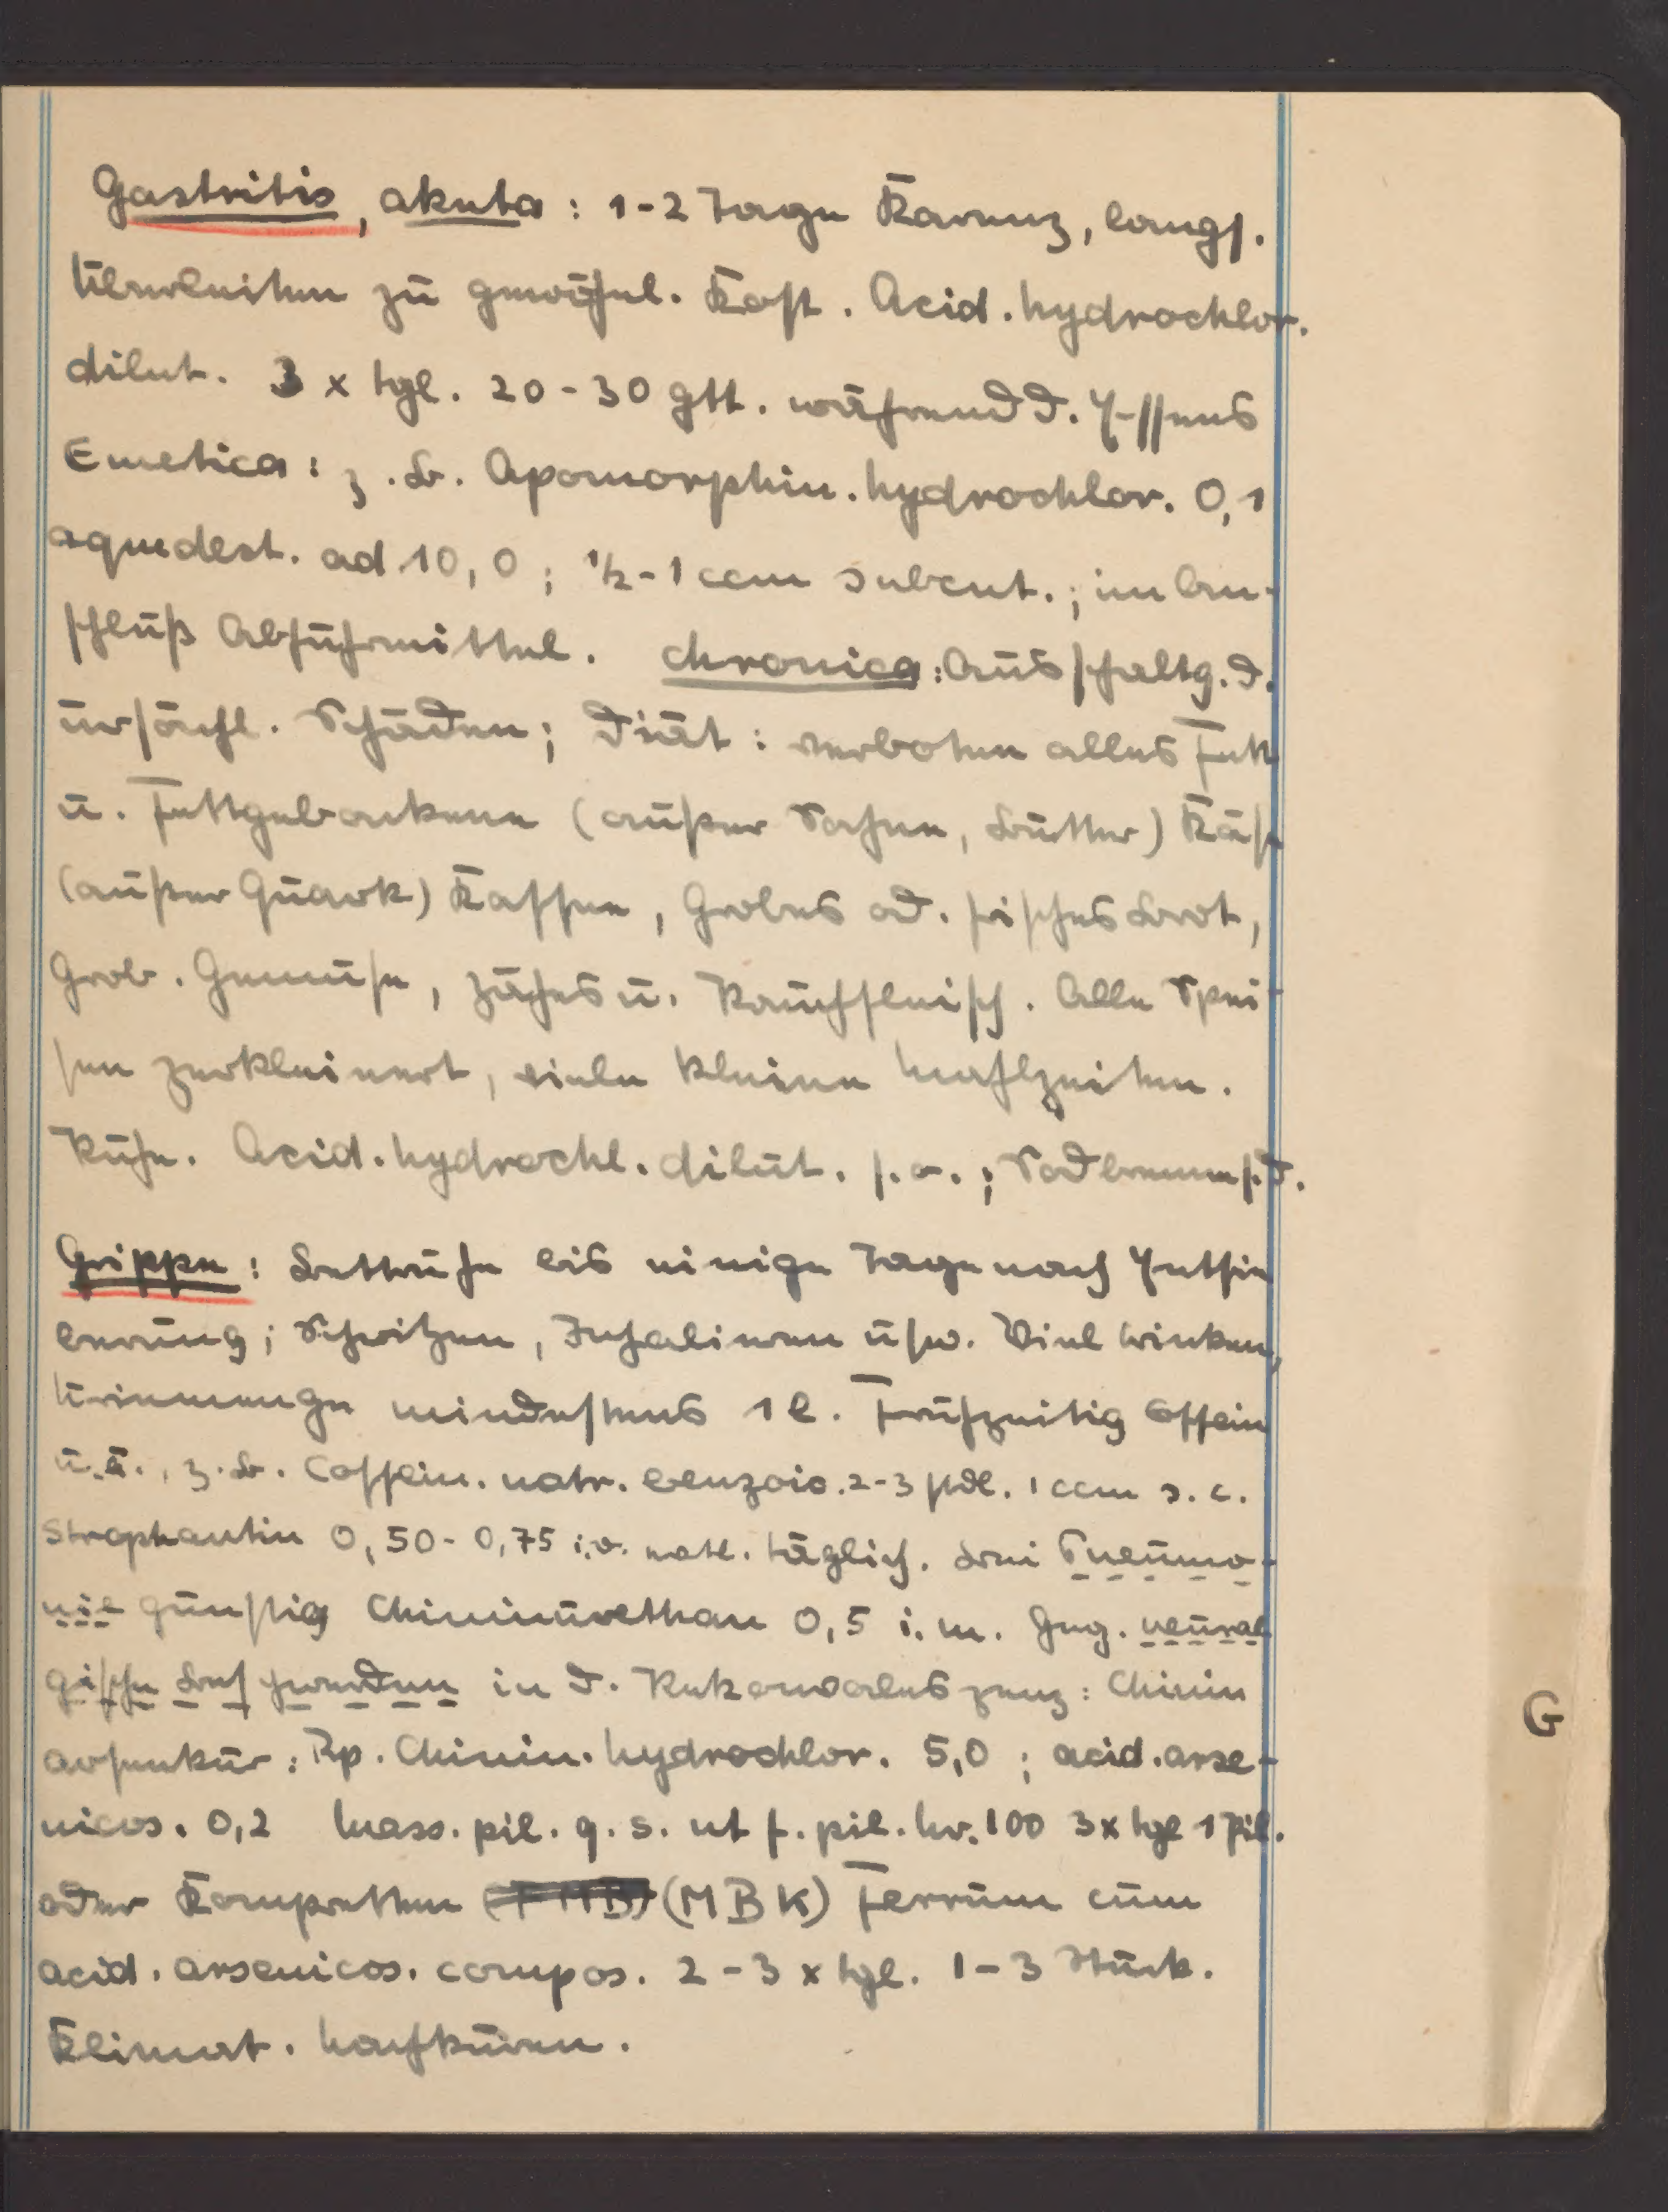 Gastritis, akuta: 1-2 Tage Karenz, langs.
Überleiten zu gewöhnl. Kost. Acid. hydrochlor.
dilut. 3 x tgl. 20-30 gtt. während d. Essens
Emetica: z. B. Apomorphin. hydrochlor. 0,1
aquedest. ad 10,0; ½-1 ccm subcut.; im An-
schluß Abführmittel. chronica: Ausschaltg. d.
ursächl. Schäden; Diät: verboten alles Fett
u. Fettgebackene (außer Sahne, Butter) Käse
(außer Quark) Kaffee, Grobes od. frisches Brot,
Grob. Gemüse, Zähes u. Rauchfleisch. Alle Spei-
sen zerkleinert, viele kleine Mahlzeiten.
Ruhe. Acid. hydrochl. dilut. s. o.; Sodbrennen s. d.
Grippe: Bettruhe bis einige Tage nach Entfie
berung; Schwitzen, Inhalieren usw. Viel trinken,
Urinmenge mindestens 1 l. Frühzeitig Coffein
u. ä., z. B. Coffein. natr. benzoic. 2-3 stdl. 1 ccm s. c.
Strophantin 0,50-0,75 i. v. täglich. Bei Pneumo-
nie günstig Chininurethan 0,5 i. m. Geg. neural
gische Beschwerden in d. Rekonvaleszenz: Chinin
arsenkur: Rp. Chinin. hydrochlor. 5,0; acid. arse-
nicos. 0,2 Mass. pil. q. s. ut f. pil. Nr. 100 3x tgl 1 Pil.
oder Kompretten (MBK) Ferrum cum
acid. arsenicos. compos. 2-3 x tgl. 1-3 Stück.
Klimat. Nachkuren.
G